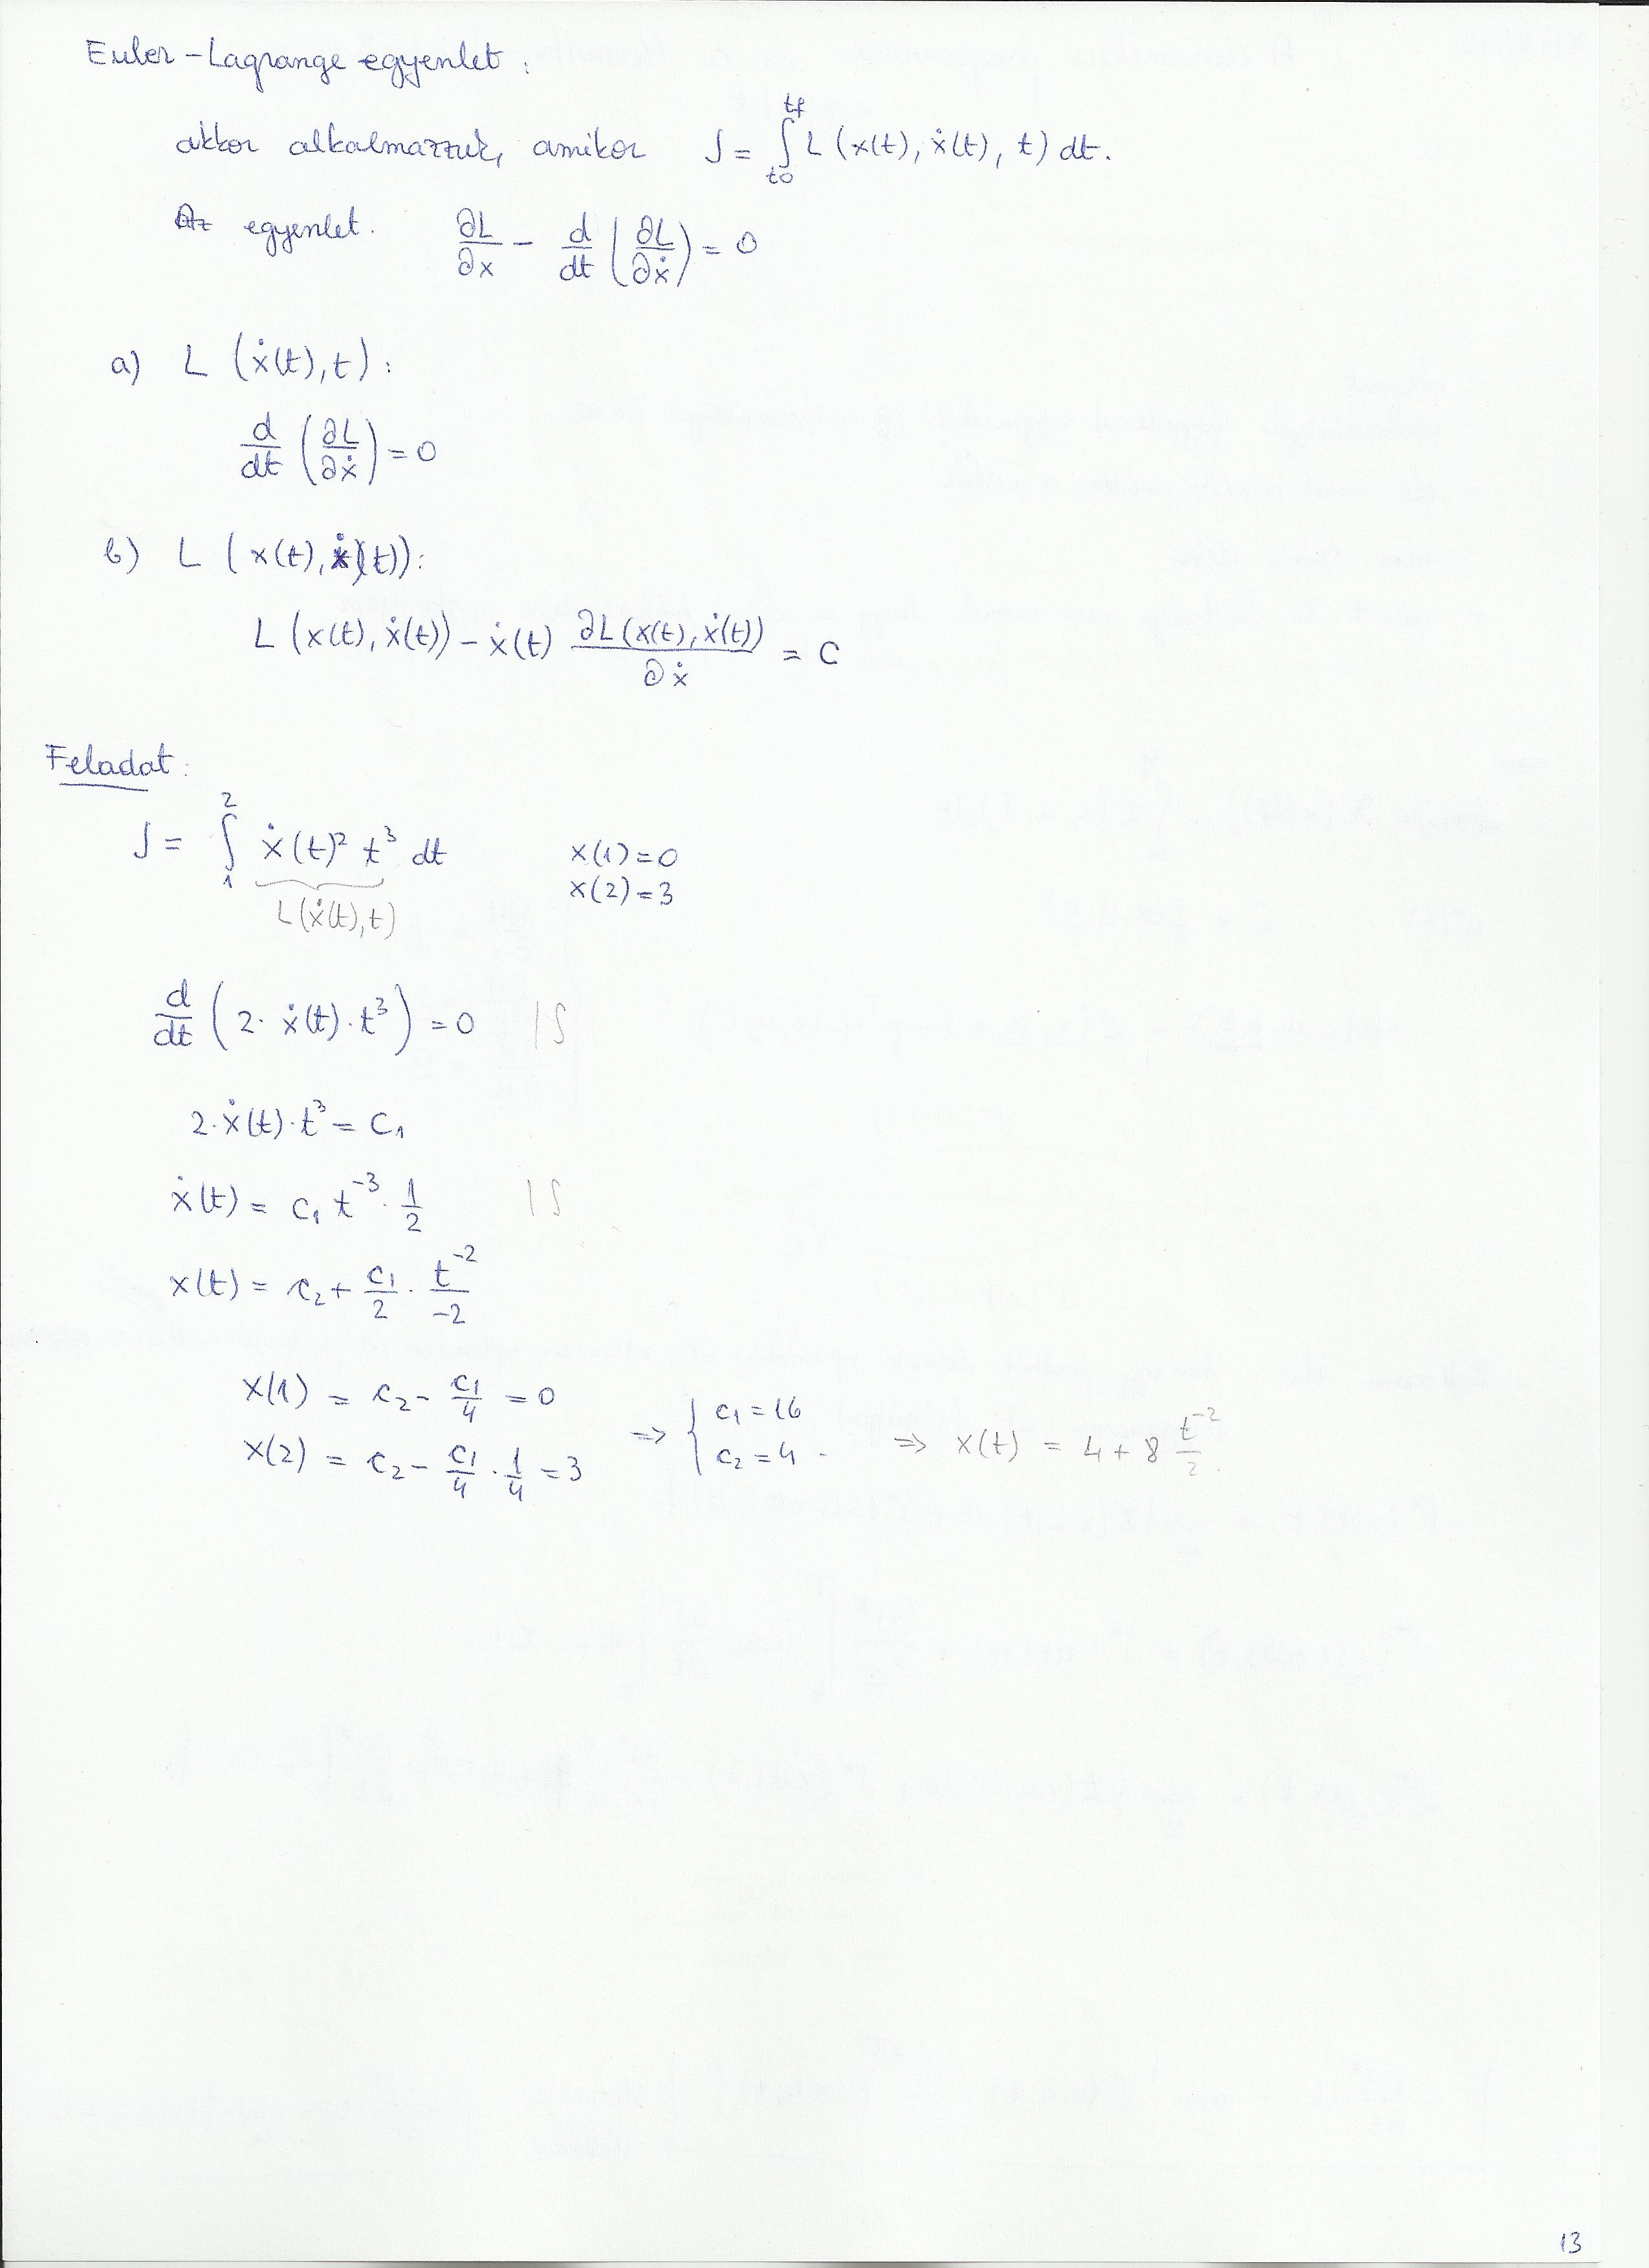 Euler-Lagrange egyenlet:
akkor alkalmazzuk, amikor J = ∫_{t0}^{tf} L (x(t), ẋ(t), t) dt.
Az egyenlet. ∂L/∂x - d/dt (∂L/∂ẋ) = 0
a) L (ẋ(t), t):
d/dt (∂L/∂ẋ) = 0
b) L (x(t), ẋ(t)):
L (x(t), ẋ(t)) - ẋ(t) ∂L(x(t), ẋ(t))/∂ẋ = C
Feladat:
J = ∫_1^2 ẋ(t)² t³ dt x(1) = 0
x(2) = 3
L(ẋ(t), t)
d/dt (2 · ẋ(t) · t³) = 0 | ∫
2 · ẋ(t) · t³ = C₁
ẋ(t) = C₁ t⁻³ · 1/2 | ∫
x(t) = c₂ + c₁/2 · t⁻²/-2
x(1) = c₂ - c₁/4 = 0
x(2) = c₂ - c₁/4 · 1/4 = 3 ⇒ { c₁ = 16 c₂ = 4 ⇒ x(t) = 4 + 8 t⁻²/2.
13